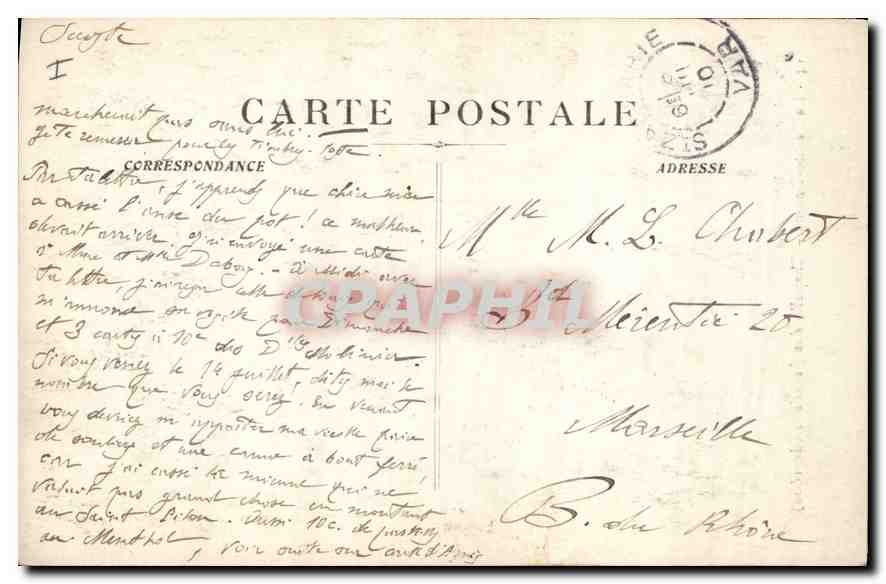 I
CARTE POSTALE
CORRESPONDANCE
ADRESSE
VAR
10
marcheront pas
Je te remercie pour les Timbres-
Par ta lettre, j'apprends que chère
a cassé l'anse du pot! ce malheur
devait arriver. J'ai envoyé une carte
à Mme et Mlle - À midi avec
ta lettre, j'ai reçu celle de
m'annonce sa pour Dimanche
et 3 cartes à 10c des Dlles Molinier.
Si vous venez le 14 juillet, dites moi le
nombre que vous serez. En venant
vous devriez m'apporter ma vieille paire
de souliers et une canne à bout ferré,
car j'ai cassé la mienne qui ne
valait pas grand chose en montant
au Saint Pilon. Aussi 10c. de pastilles
au Menthol, voir suite sur carte d'
Mlle M. L. Chabert
Bd Mérentié 20
Marseille
B. du Rhône
CPAPHIL